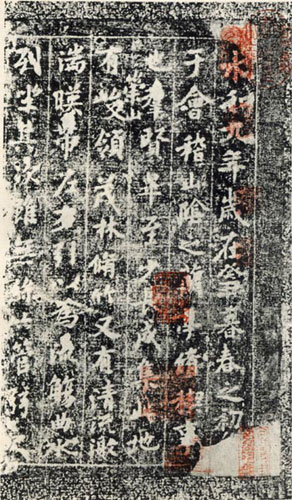 永和九年歲在癸丑暮春之初
于會稽山陰之蘭亭脩稧事
也羣賢畢至少長咸集此地
崇山
有峻領茂林脩竹又有清流激
湍暎帶左右引以為流觴曲水
列坐其次雖無絲竹管弦之